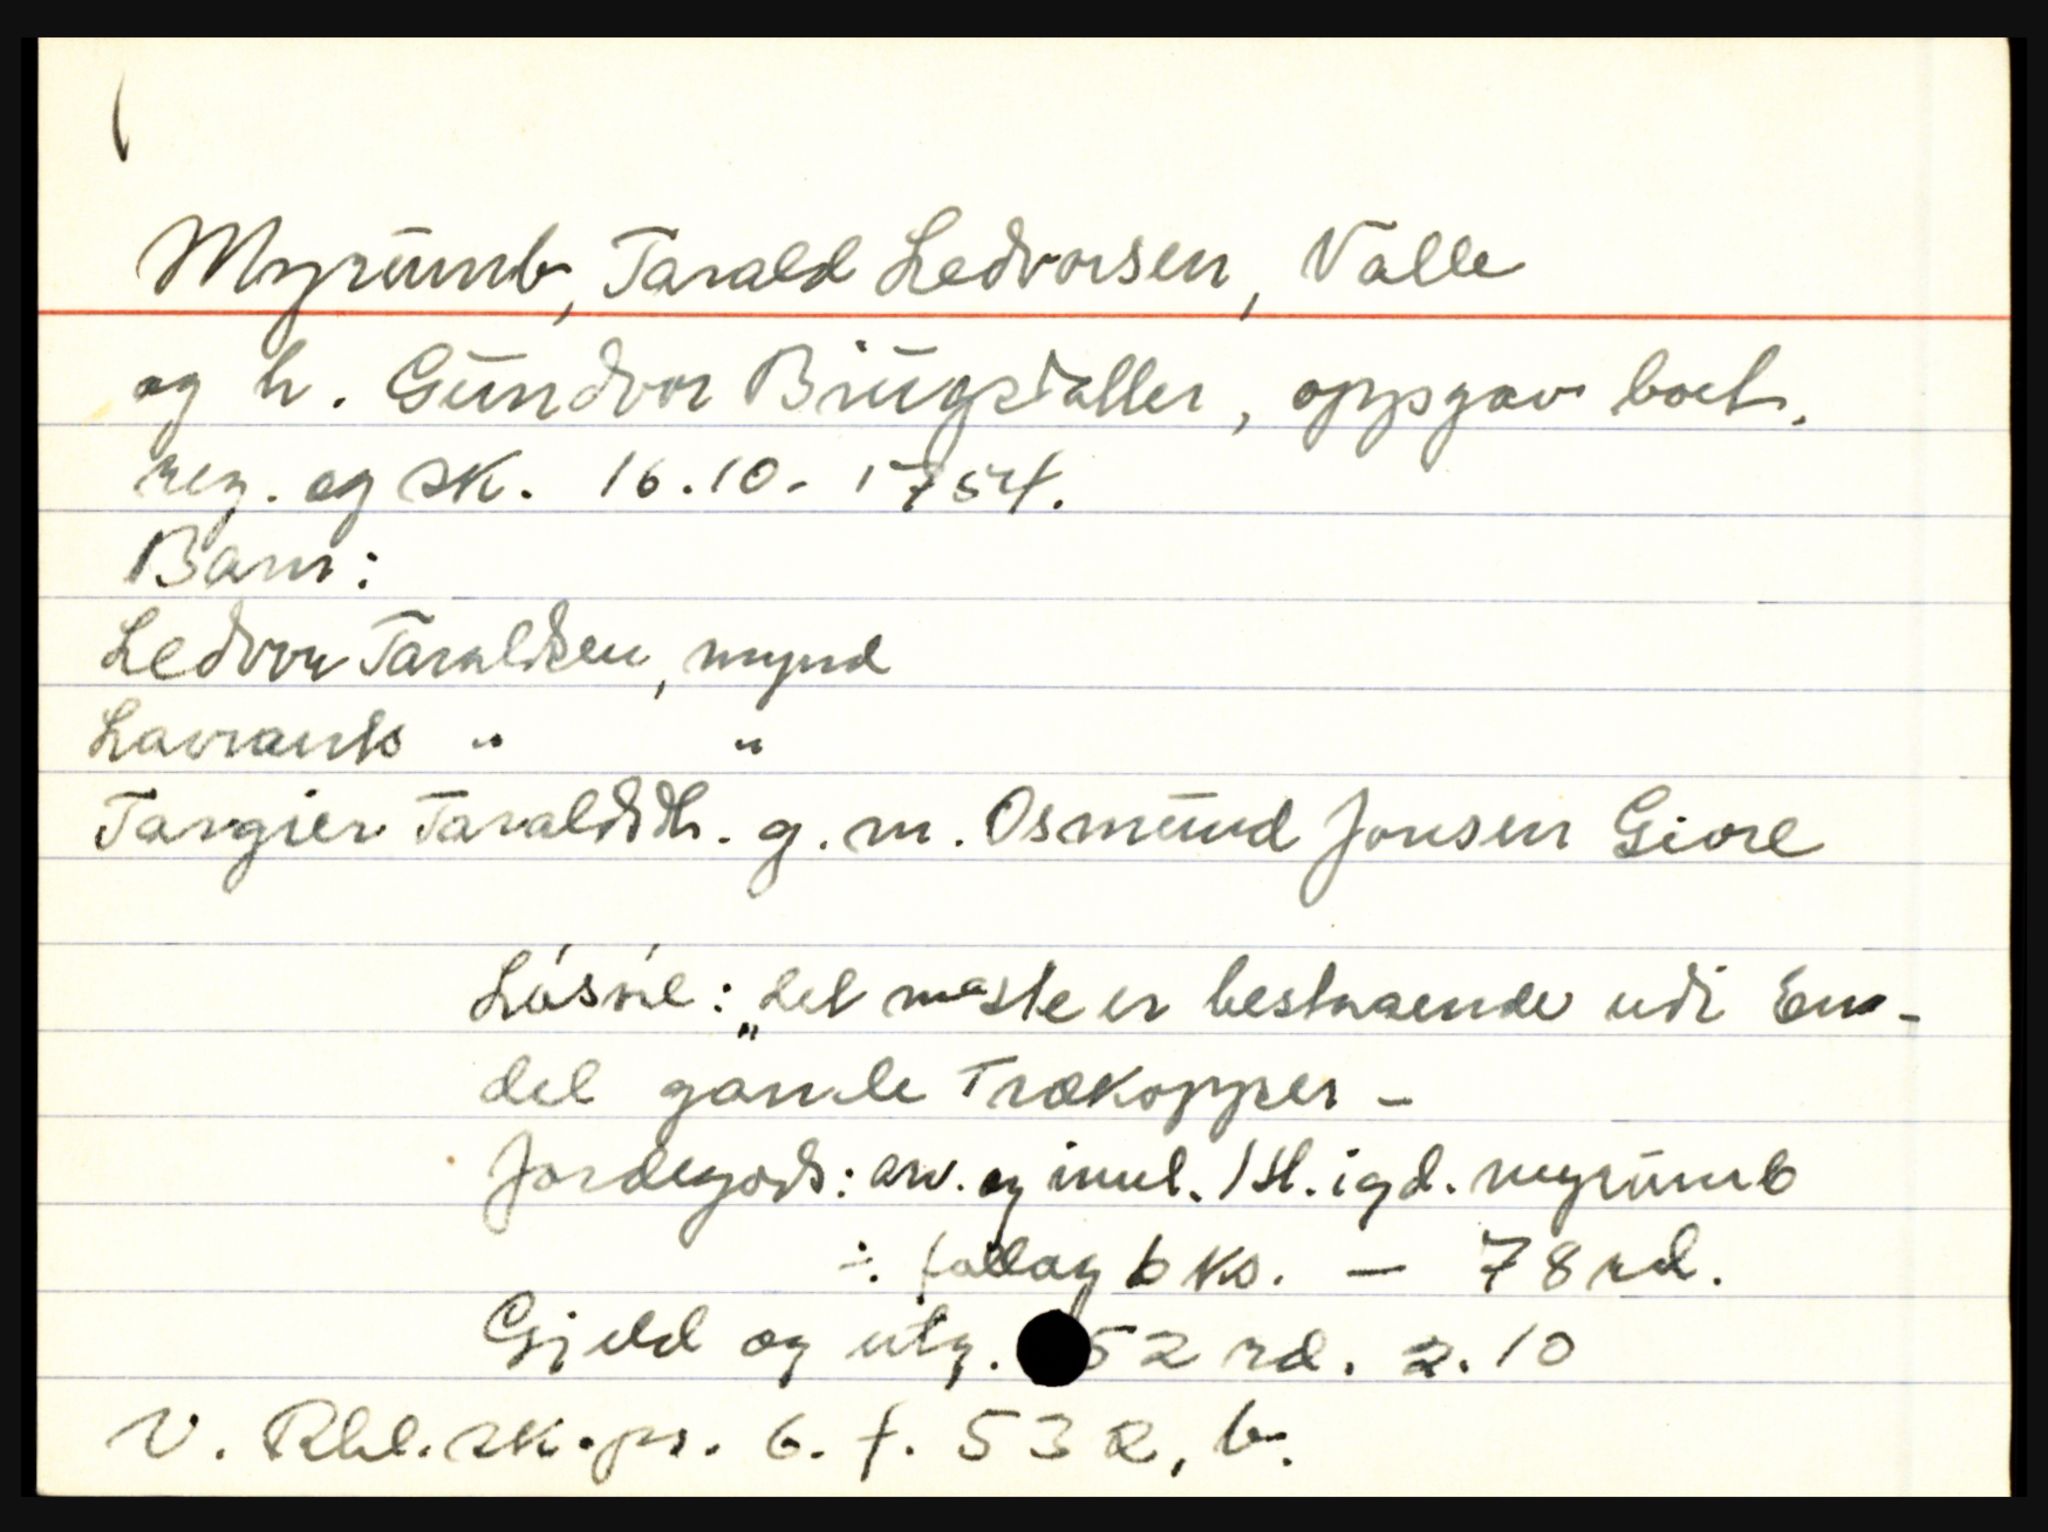 Myrumb, Tarald Ledvorsen, Valle
og h. Gundvor Biugsdatter, oppgav boet.
reg. og sk. 16.10.1754.
Barn:
Ledvor Taraldsen, mynd
Lavrants " "
Targier Taraldsdt. g. m. Osmund Jonsen Giore
Lösöre: „det maste er bestaaende udi Een-
del gamle Trækopper -
Jordegods: arv. og innl. 1 H. i gd. Myrumb
÷. fallag 6 ks. — 78 rd.
Gjeld og utg. 52 rd. 2. 10
V. Rbl. sk. pr. 6. f. 532, b.